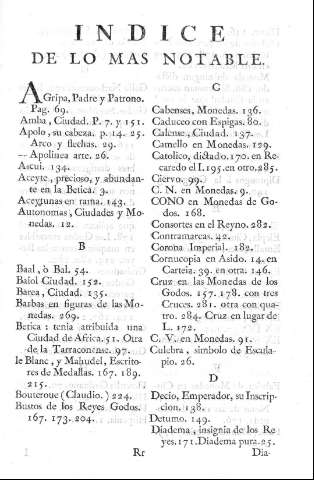 INDICE
DE LO MAS NOTABLE.
A Gripa, Padre y Patrono.
Pag. 69.
Amba, Ciudad. P. 7. y 151.
Apolo, su cabeza. p. 14. 25.
Arco y flechas. 29.
— Apolinea arte. 26.
Ascui. 134.
Aceyte, precioso, y abundan-
te en la Betica. 3.
Aceytunas en rama. 143.
Autonomas, Ciudades y Mo-
nedas. 12.
B
Baal, ò Bal. 54.
Bailol Ciudad. 152.
Barea, Ciudad. 135.
Barbas en figuras de las Mo-
nedas. 269.
Betica: tenia atribuida una
Ciudad de Africa. 51. Otra
de la Tarraconense. 97.
le Blanc, y Mahudel, Escrito-
res de Medallas. 167. 189.
215.
Bouteroue (Claudio.) 224.
Bustos de los Reyes Godos.
167. 173. 204.
C
Cabenses, Monedas. 136.
Caduceo con Espigas. 80.
Calense, Ciudad. 137.
Camello en Monedas. 129.
Catolico, dictado. 170. en Re-
caredo el I. 195. en otro. 285.
Ciervo. 99.
C. N. en Monedas. 9.
CONO en Monedas de Go-
dos. 168.
Consortes en el Reyno. 282.
Contramarcas. 42.
Corona Imperial. 182.
Cornucopia en Asido. 14. en
Carteia. 39. en otra. 146.
Cruz en las Monedas de los
Godos. 157. 178. con tres
Cruces. 281. otra con qua-
tro. 284. Cruz en lugar de
L. 172.
C. V. en Monedas. 91.
Culebra, simbolo de Escula-
pio. 26.
D
Decio, Emperador, su Inscrip-
cion. 138.
Detumo. 149.
Diadema, insignia de los Re-
yes. 171. Diadema pura. 25.
Rr
Dia-